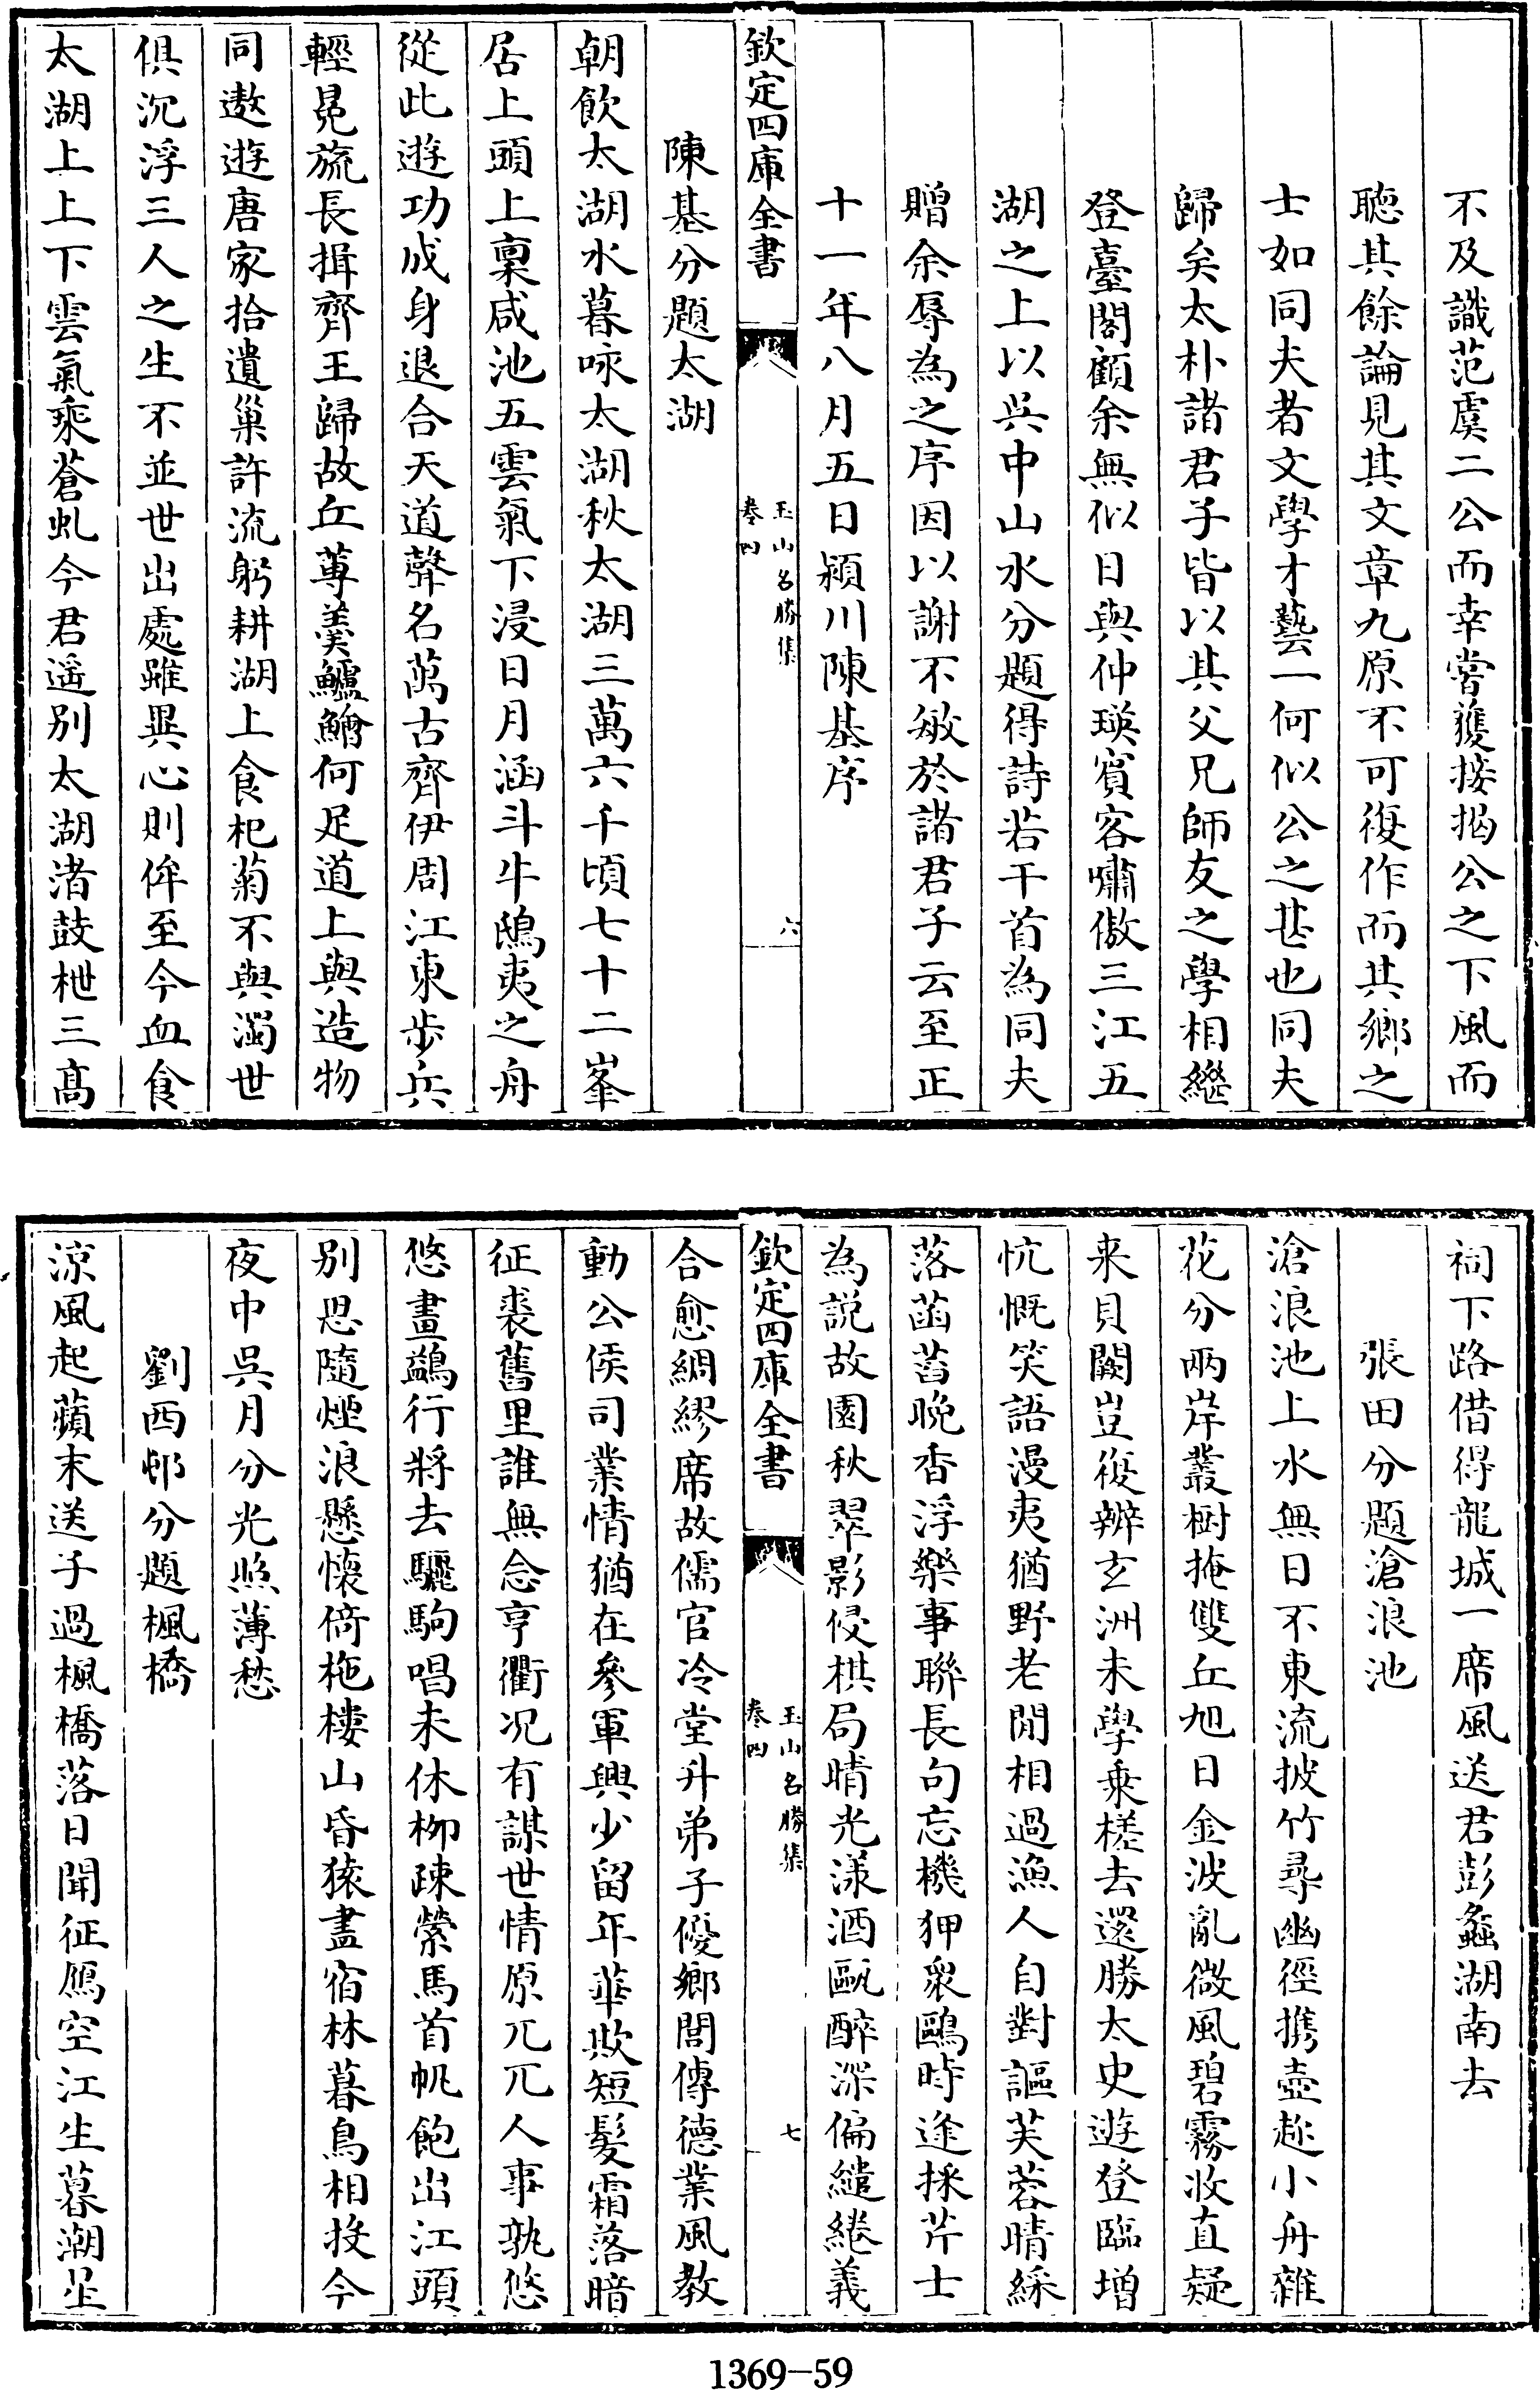 不及識范虞二公而幸嘗獲接揭公之下風而
聽其餘論見其文章九原不可復作而其鄉之
士如同夫者文學才藝一何似公之甚也同夫
歸矣太朴諸君子皆以其父兄師友之學相繼
登臺閣顧余無似日與仲瑛賓客嘯傲三江五
湖之上以吳中山水分題得詩若干首為同夫
贈余辱為之序因以謝不敏於諸君子云至正
十一年八月五日潁川陳基序
欽定四庫全書
玉山名勝集
卷四
六
陳基分題太湖
朝飲太湖水暮咏太湖秋太湖三萬六千頃七十二峯
居上頭上稟咸池五雲氣下浸日月涵斗牛鴟夷之舟
從此遊功成身退合天道聲名萬古齊伊周江東步兵
輕冕旒長揖齊王歸故丘蓴羮鱸鱠何足道上與造物
同遨遊唐家拾遺巢許流躬耕湖上食杞菊不與濁世
俱沉浮三人之生不並世出處雖異心則侔至今血食
太湖上上下雲氣乘蒼虬今君遥别太湖渚鼓枻三高
祠下路借得龍城一席風送君彭蠡湖南去
張田分題滄浪池
滄浪池上水無日不東流披竹尋幽徑携壺趂小舟雜
花分兩岸叢樹掩雙丘旭日金波亂微風碧霧收直疑
来貝闕豈復辨玄洲未學乗槎去還勝太史遊登臨增
忼慨笑語漫夷猶野老閒相過漁人自對謳芙蓉晴綵
落菡萏晚香浮樂事聯長句忘機狎衆鷗時逢採芹士
為説故園秋翠影侵棋局晴光漾酒甌醉深偏繾綣義
欽定四庫全書
玉山名勝集
卷四
七
合愈綢繆席故儒官冷堂升弟子優鄉閭傳德業風教
動公侯司業情猶在參軍興少留年華欺短髮霜落暗
征裘舊里誰無念亨衢况有謀世情原兀兀人事孰悠
悠畫鷁行將去驪駒唱未休栁疎縈馬首帆飽出江頭
别思隨煙浪懸懷倚柂樓山昏猿晝宿林暮鳥相投今
夜中吳月分光照薄愁
劉西邨分題楓橋
涼風起蘋末送子過楓橋落日聞征鴈空江生暮潮星
1369-59